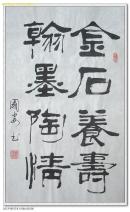 金石養壽
翰墨陶情